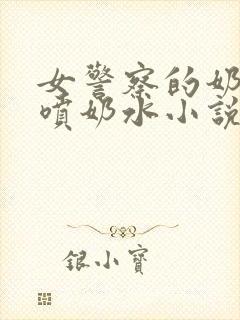 女警察的奶
噴奶水小說
银小寶